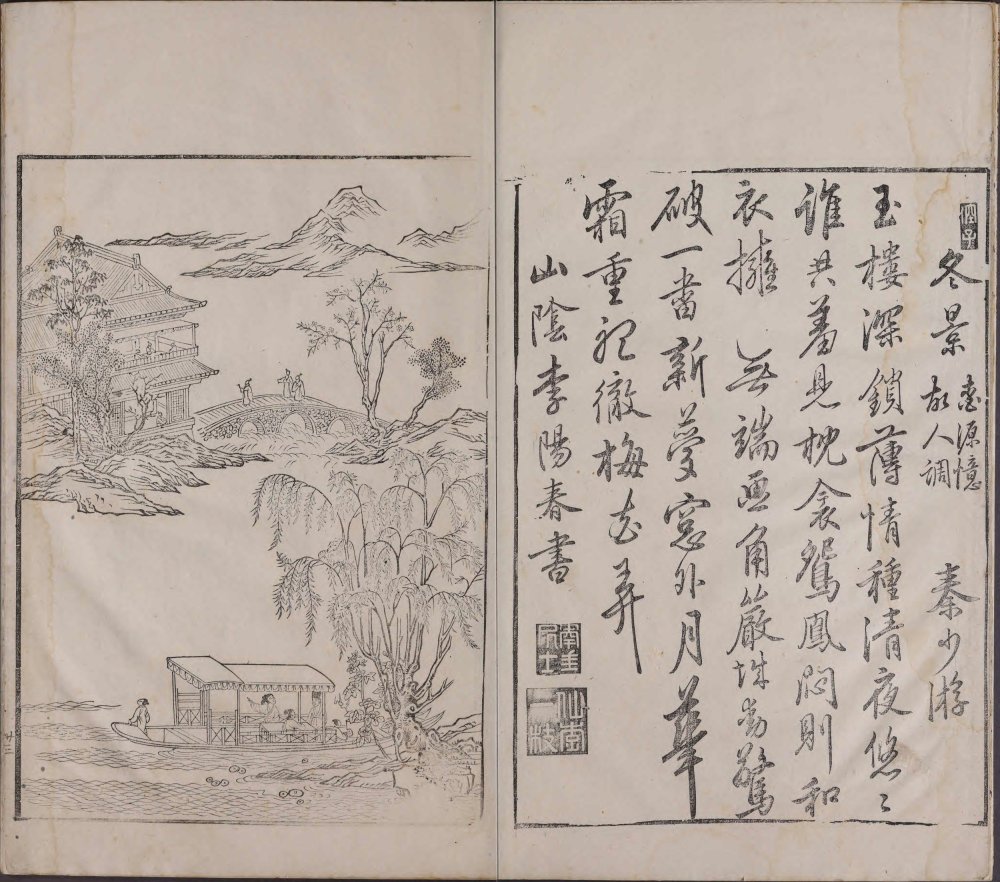 冬景 桃源憶故人調 秦少游
玉樓深鎖薄情種清夜悠〻
誰共羞見枕衾鴛鳳悶則和
衣擁 無端画角嚴城動驚
破一番新夢窓外月華
霜重聽徹梅花弄
山陰李陽春書